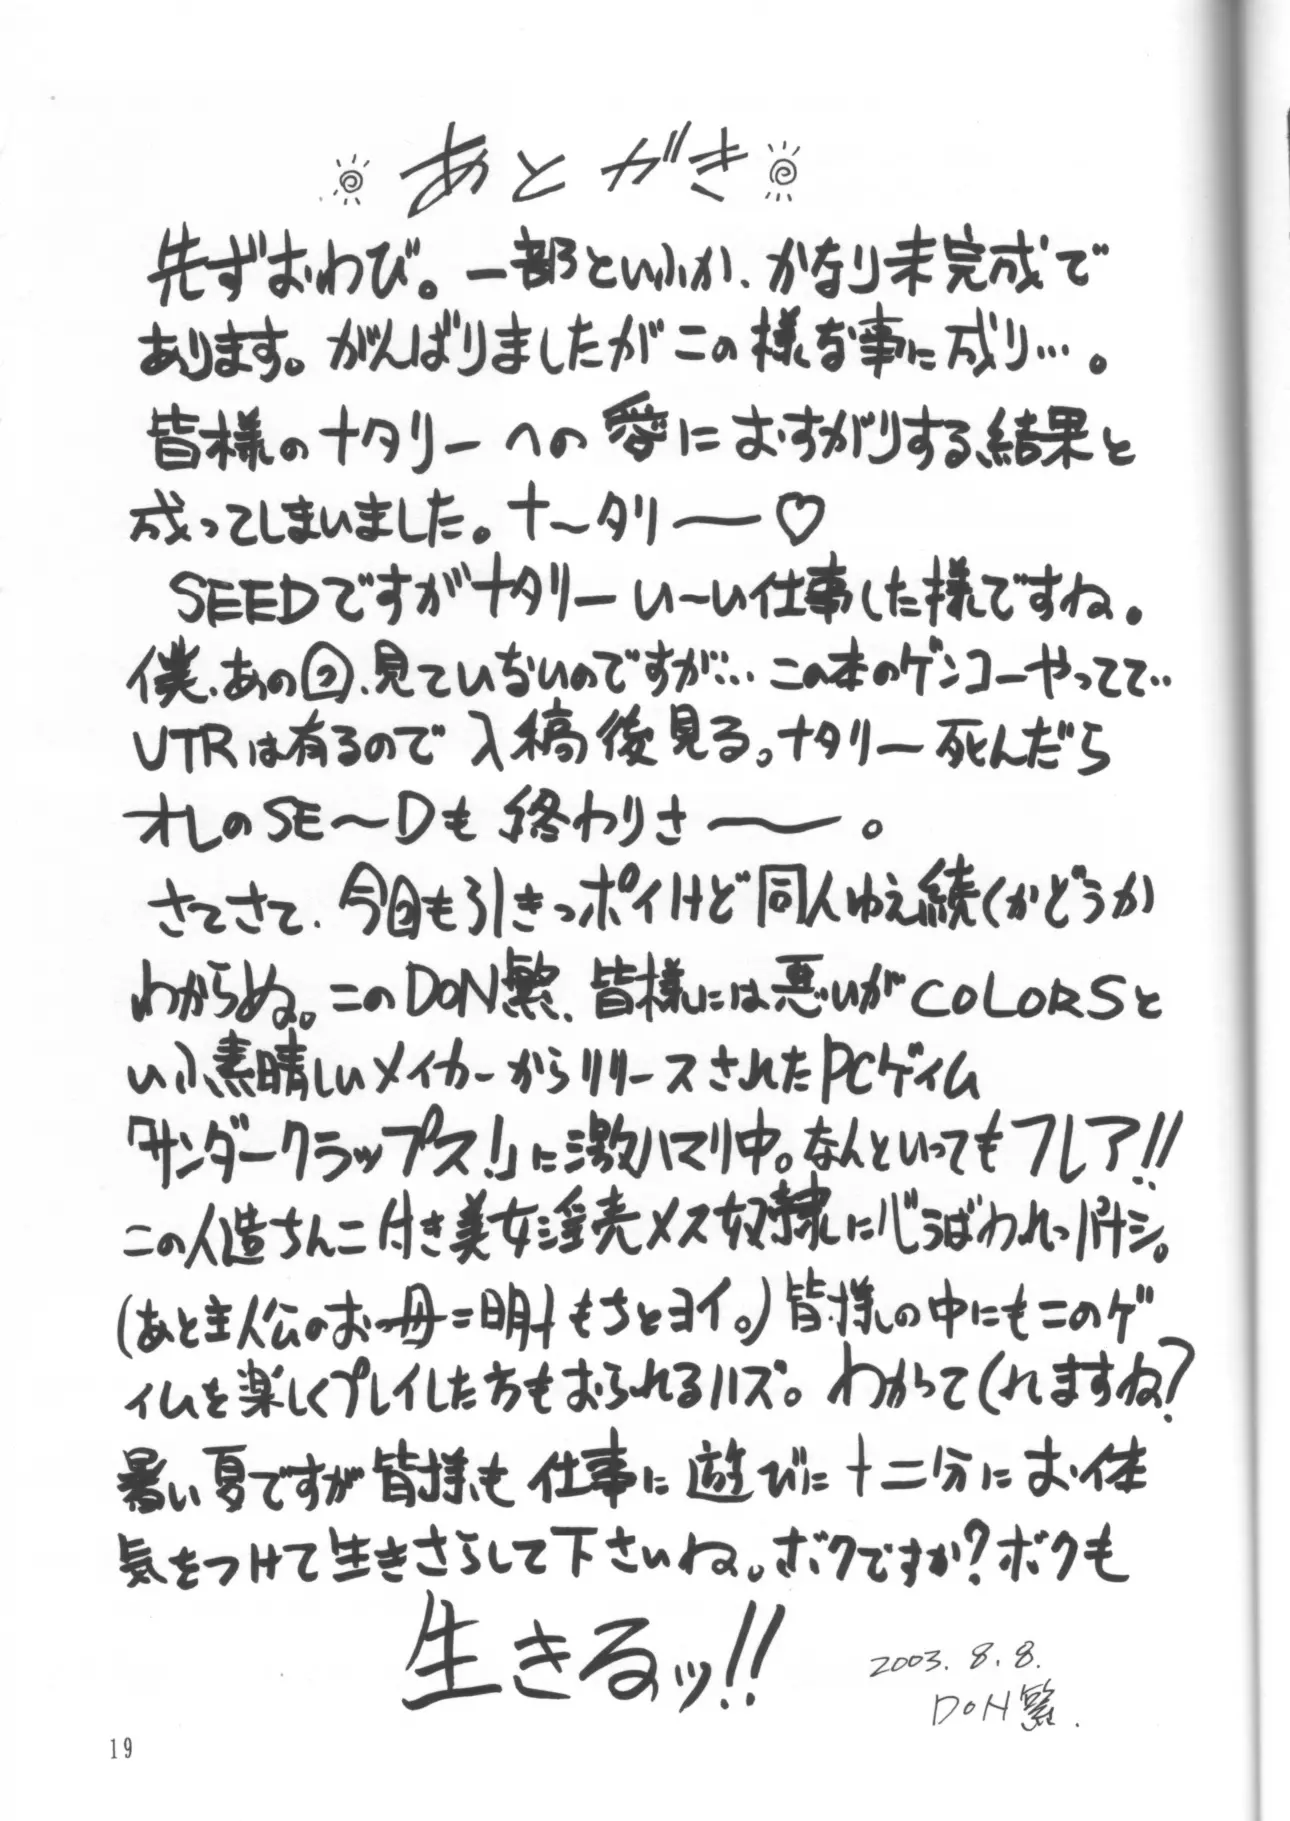 あとがき
先ずおわび。一部といふか、かなり未完成で
あります。がんばりましたがこの様な事に成り…。
皆様のナタリーへの愛におすがりする結果と
成ってしまいました。ナ〜タリー♡
SEEDですがナタリーい〜い仕事した様ですね。
僕、あの回、見ていないのですが… この本のゲンコーやってて‥
VTRは有るので入稿後見る。ナタリー死んだら
オレのSE〜Dも終わりさ――。
さてさて、今回も引きっポイけど同人ゆえ続くかどうか
わからぬ。このDoN繁、皆様には悪いがCOLORSと
いふ素晴しいメイカーからリリースされたPCゲイム
「サンダークラップス!」に激ハマリ中。なんといってもフレア!!
この人造ちんこ付き美女淫売メス奴隷に心うばわれっパナシ。
(あと主人公のお母ニ明サもちとヨイ。)皆様の中にもこのゲ
イムを楽しくプレイした方もおられるハズ。わかってくれますね?
暑い夏ですが皆様も仕事に遊びに十二分にお体
気をつけて生きさらして下さいね。ボクですか?ボクも
生きるッ!!
2003.8.8.
DoN繁.
19